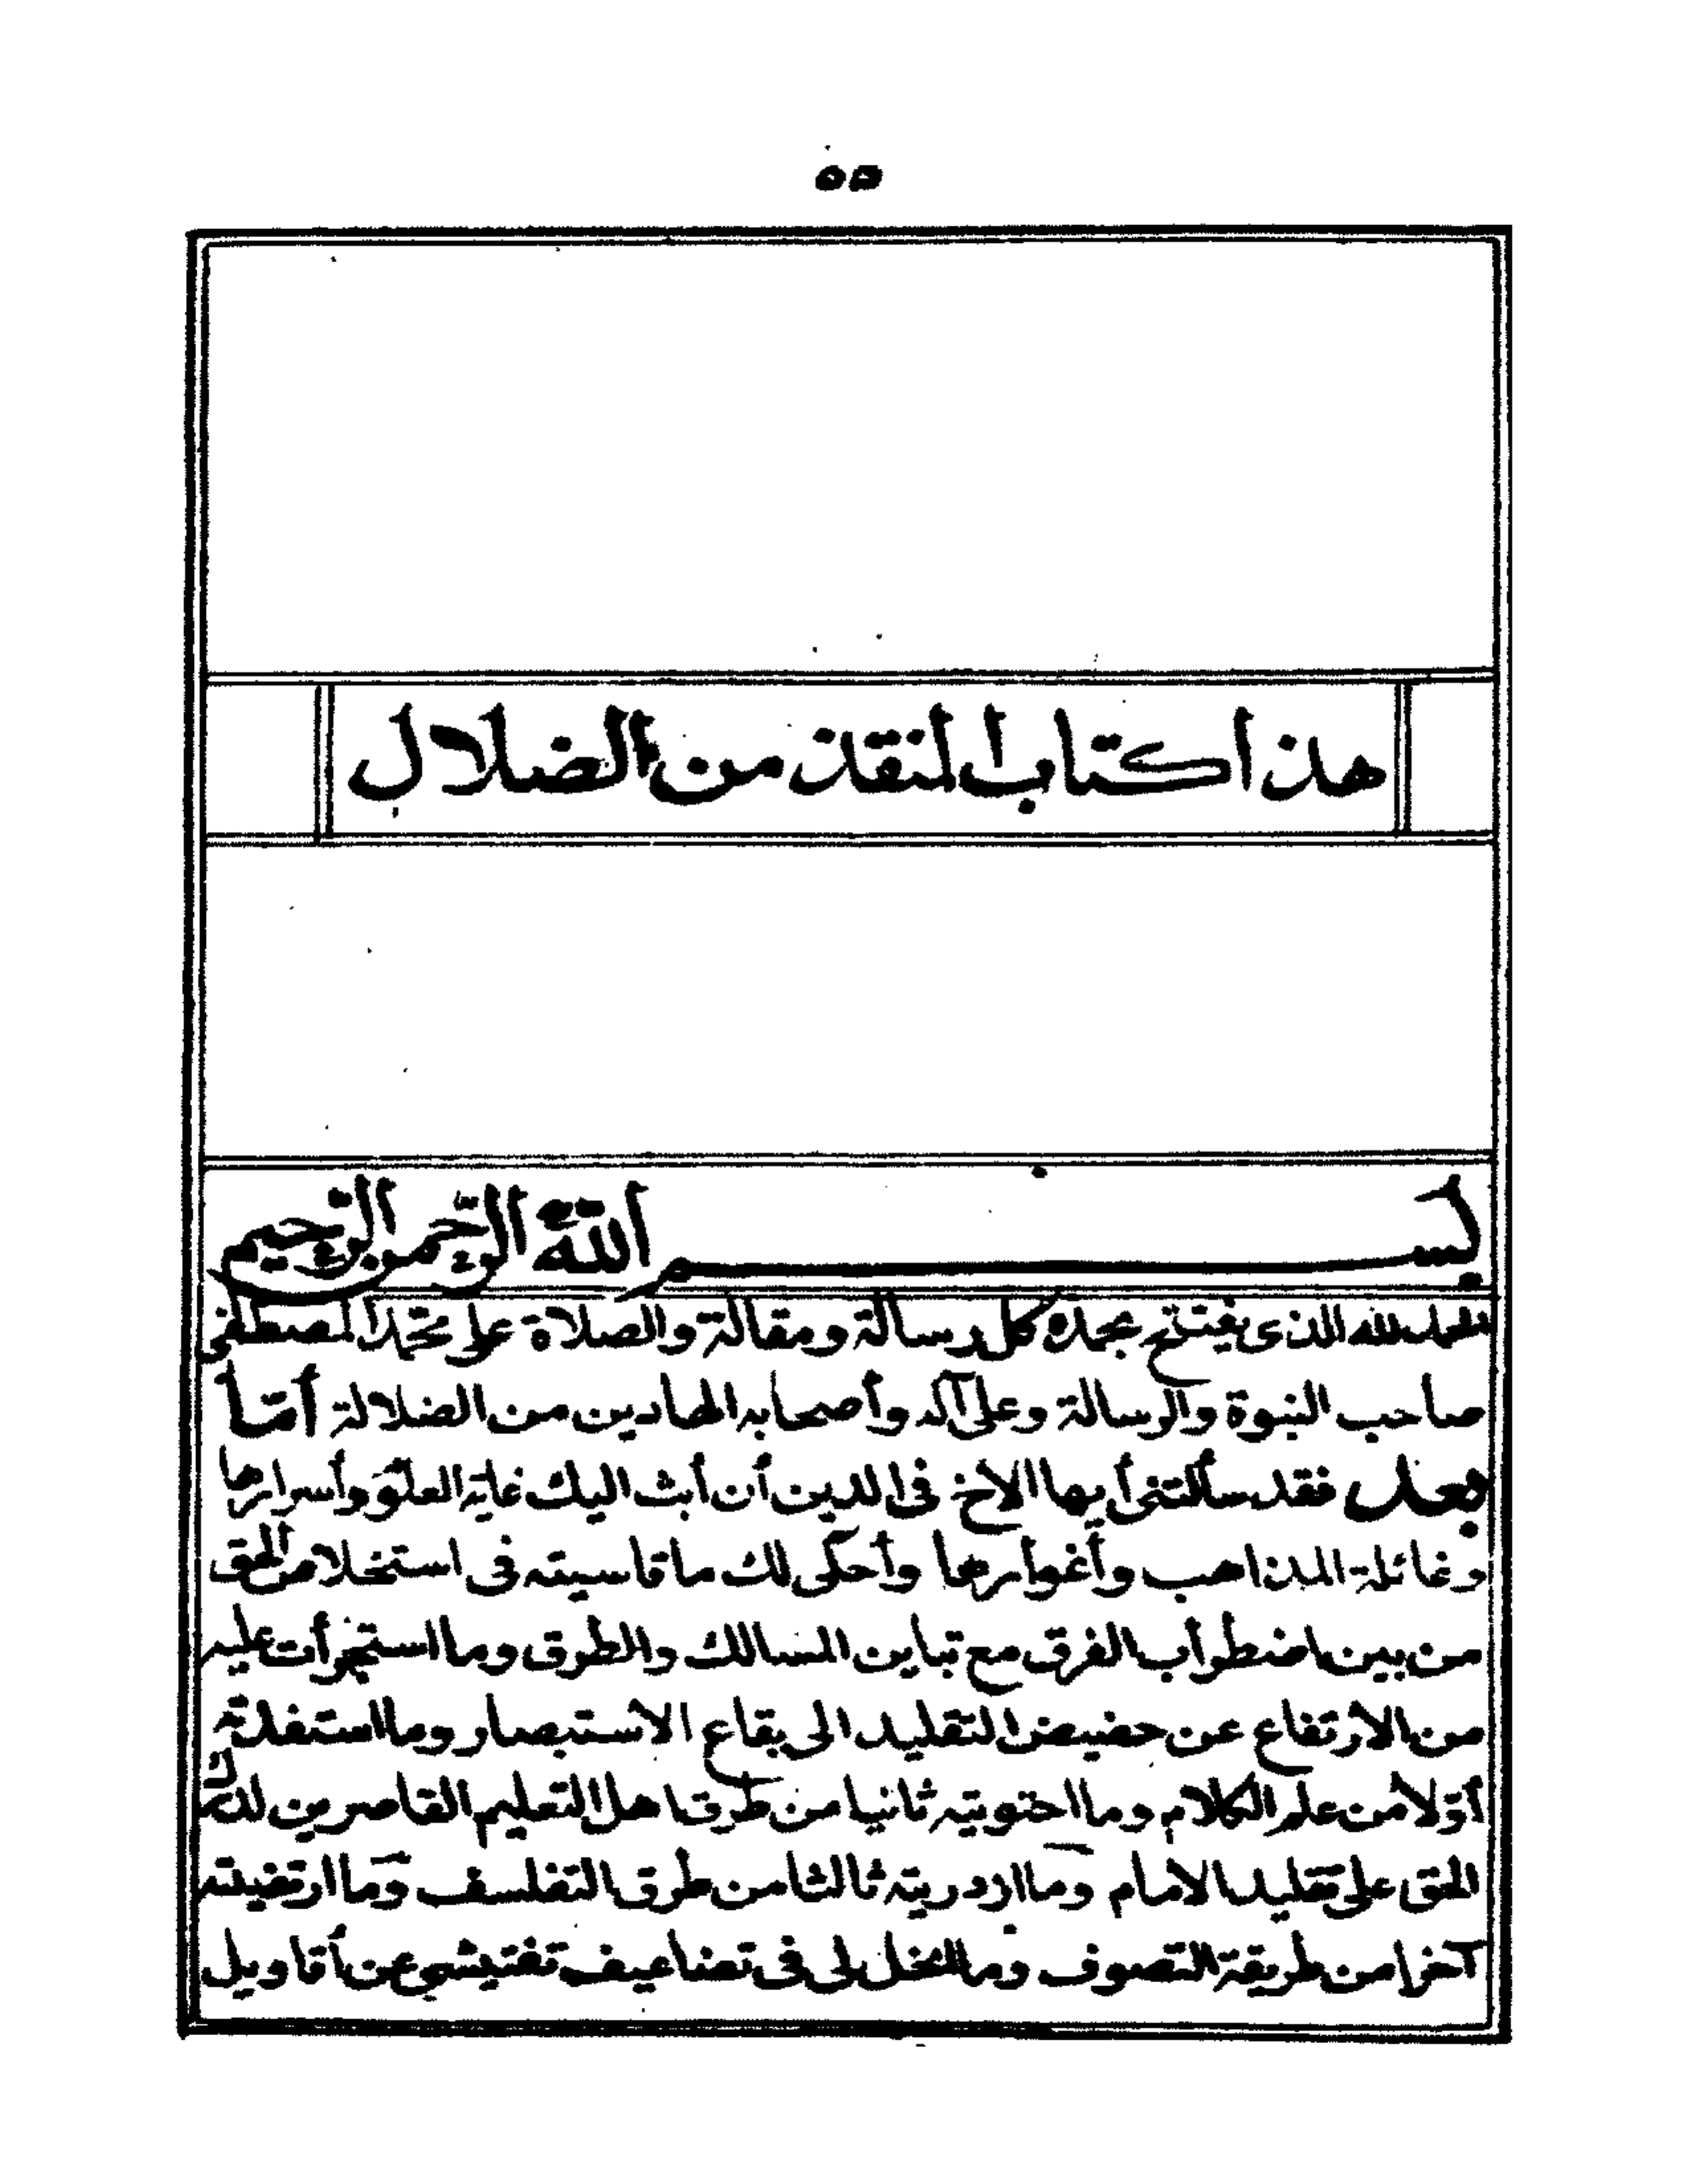 ٥٥
هذا كتاب المنقذ من الضلال
بسم الله الرحمن الرحيم
الحمد لله الذى يفتتح بحمده كل رسالة ومقالة والصلاة على محمد المصطفى
صاحب النبوة والرسالة وعلى آله وأصحابه الهادين من الضلالة أمّا
بعد فقد سألتنى أيها الاخ فى الدين أن أبث اليك غاية العلوم وأسرارها
وغائلة المذاهب وأغوارها وأحكى لك ما قاسيته فى استخلاص الحق
من بين اضطراب الفرق مع تباين المسالك والطرق وما استجرأت عليه
من الارتفاع عن حضيض التقليد الى بقاع الاستبصار وما استفدته
أوّلا من علم الكلام وما احتويته ثانيا من طرق اهل التعليم القاصرين لدرك
الحق على تقليد الامام وما ازدريته ثالثا من طرق التفلسف وما ارتضيته
آخرا من طريقة التصوف وما انخل لى فى تضاعيف تفتيشى عن أقاويل